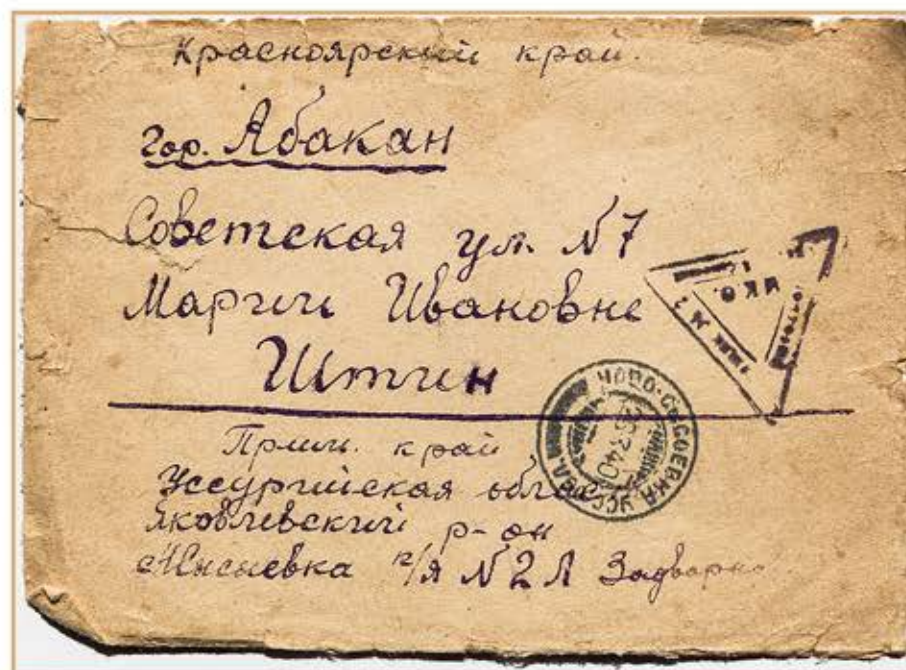 Красноярский край.
гор. Абакан
Советская ул. №7
Марии Ивановне
Штин
Прим. край
Уссурийская област
Яковлевский р-он
п/я № 2 Л
НОВО-СЫСОЕВКА УССУР. ОБЛ.
НКО